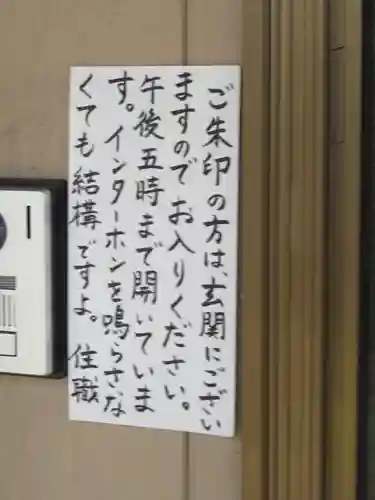 ご朱印の方は、玄関にござい
ますのでお入りください。
午後五時まで開いていま
す。インターホンを鳴らさな
くても結構ですよ。住職